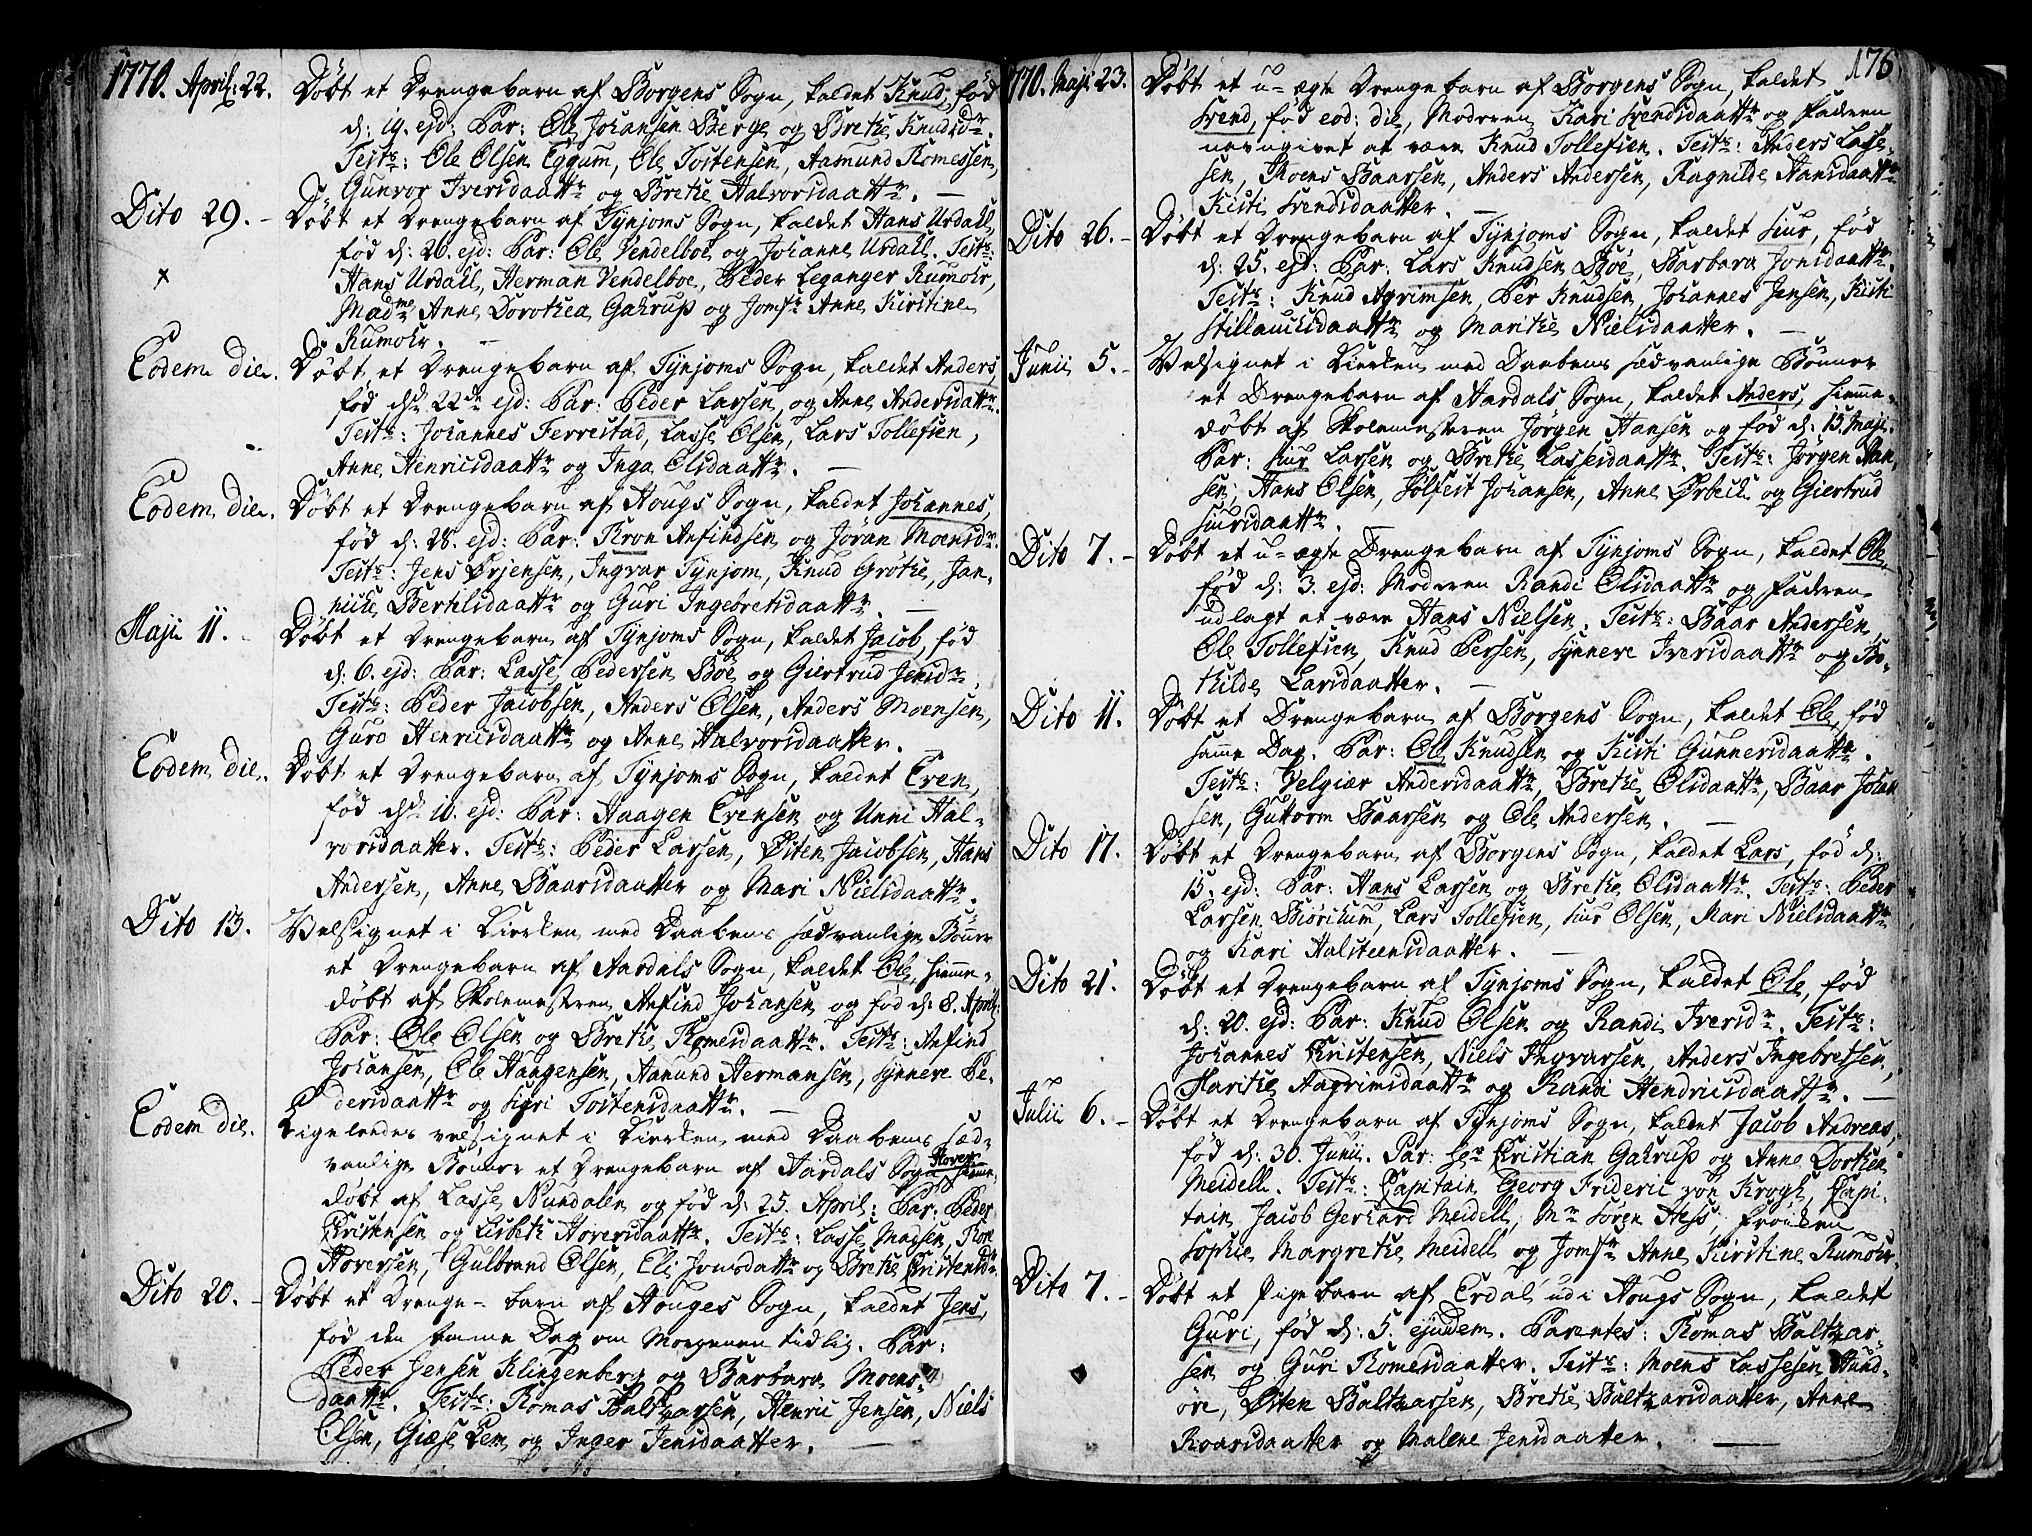 1770. April: 22. Døbt et Drengebarn af Borgens Sogn, kaldet Knud, fød
d: 19. ejd: Par: Ole Johansen Berge og Brethe Knudsd:r
Test:s: Ole Olsen Eggum, Ole Tostensen, Aamund Romessen,
Gunvor Iversdaatt:r og Brethe Halvorsdaatt:r. —
Dito 29. – Døbt et Drengebarn af Tynjoms Sogn, kaldet Hans Urdall,
fød d: 26. ejd: Par: Ole Vendelboe og Johanne Urdall. Test:s:
× Hans Urdall, Herman Vendelboe, Peder Leganger Rumohr,
Mad:me Anne Dorothea Gahrup og Jomf:r Anne Kirstine
Rumohr. —
Eodem die. Døbt et Drengebarn af Tynjoms Sogn, kaldet Anders,
fød d: 22de ejd: Par: Peder Larsen, og Anne Andersdatt:r.
Test:s: Johannes Ferrestad, Lasse Olsen, Lars Tollefsen,
Anne Henricsdaatt:r og Inga Olsdaatt:r. —
Eodem die. Døbt et Drengebarn af Hougs Sogn, kaldet Johannes,
fød d: 28. ejd: Par: Aron Anfindsen og Jøran Moensd:r.
Test:s: Jens Ørjensen, Ingvar Tynjom, Knud Grøthe, Jan-
niche Bertelsdaatt:r og Guri Ingebretsdaatt:r. —
Maji 11. Døbt et Drengebarn af Tynjoms Sogn, kaldet Jacob, fød
d: 6. ejd: Par: Lasse Pedersen Bøe og Giertrud Jensd:r.
Test:s: Peder Jacobsen, Anders Olsen, Anders Moensen,
Guro Henricsdaatt:r og Anne Halvorsdaatter. —
Eodem die. Døbt et Drengebarn af Tynjoms Sogn, kaldet Even,
fød d: 10. ejd: Par: Haagen Evensen og Unni Hal-
vorsdaatter. Test:s: Peder Larsen, Østen Jacobsen, Hans
Andersen, Anne Baarsdaatter og Mari Nielsdaatt:r.
Dito 13. Velsignet i Kierken med Daabens sædvanlige Bønner
et Drengebarn af Aardals Sogn, kaldet Ole, hiemme-
døbt af Skolemesteren Anfind Johansen og fød d: 8. April:
Par: Ole Olsen og Brethe Romesdaatt:r. Test:s: Anfind
Johansen, Ole Haagensen, Aamund Hermansen, Synneve Pe-
dersdaatt:r og Siri Tostensdaatt:r. —
Eodem die. Ligeledes velsignet i Kierken med Daabens sæd-
vanlige Bønner et Drengebarn af Aardals Sogn Hover hiemme-
døbt af Lasse Nundalen og fød d: 25. April: Par: Peder
Christensen og Lisbeth Hoversdaatt:r. Test:s: Lasse Madsen,
Hoversen, Gulbrand Olsen, Eli Jonsdaatt:r og Brethe Christensd:r
Dito 20. – Døbt et Drenge-barn af Houges Sogn, kaldet Jens,
fød den samme Dag om Morgenen tidlig. Par:
Peder Jensen Klingenberg og Barbara Moens-
daatt:r. Test:s: Romas Baltzarsen, Henric Jensen, Niels
Olsen, Giese Lem og Inger Jensdaatter. —
176
1770. Maji 23. Døbt et u-ægte Drengebarn af Borgens Sogn, kaldet
Svend, fød eod: die, Moderen Kari Svendsdaatt:r og Faderen
navngivet at være Knud Tollefsen. Test:s: Anders Lasse-
sen, Moens Baarsen, Anders Andersen, Ragnilde Hansdaatt:r
Kisti Svendsdaatter. —
Dito 26. – Døbt et Drengebarn af Tynjoms Sogn, kaldet Siur, fød
d: 25. ejd: Par: Lars Knudsen Bøe, Barbara Jonsdaatt:r.
Test:s: Knud Agrimsen, Per Knudsen, Johannes Jensen, Kisti
Stillauchsdaatt:r og Marithe Nielsdaatter. —
Junii 5. – Velsignet i Kierken med Daabens sædvanlige Bønner
et Drengebarn af Aardals Sogn, kaldet Anders, hiemme-
døbt af Skolemesteren Jørgen Hansen og fød d: 13. Maji.
Par: Siur Larsen og Brethe Lassesdaatt:r. Test:s: Jørgen Han-
sen, Hans Olsen, Sølfest Johansen, Anne Ørbech og Giertrud
Siursdaatt:r.
Dito 7. – Døbt et u-ægte Drengebarn af Tynjoms Sogn, kaldet Ole,
fød d: 3. ejd: Moderen Randi Olsdaatt:r og Faderen
udlagt at være Hans Nielsen. Test:s: Baar Andersen,
Ole Tollefsen, Knud Persen, Synneve Iversdaatt:r og Bo-
thilde Larsdaatter. —
Dito 11. Døbt et Drengebarn af Borgens Sogn, kaldet Ole, fød
samme Dag. Par: Ole Knudsen og Kisti Gunnersdaatt:r.
Test:s: Velgiær Andersdaatt:r, Brethe Olsdaatt:r, Baar Johan
sen, Guttorm Baarsen og Ole Andersen. —
Dito 17. Døbt et Drengebarn af Borgens Sogn, kaldet Lars, fød d:
15. ejd: Par: Hans Larsen og Brethe Olsdaatt:r. Test:s: Peder
Larsen Biørkum, Lars Tollefsen, Siur Olsen, Mari Nielsdaatt:r
og Kari Halsteensdaatter. —
Dito 21. Døbt et Drengebarn af Tynjoms Sogn, kaldet Ole, fød
d: 20. ejd: Par: Knud Olsen og Randi Iversd:r. Test:s:
Johannes Christensen, Niels Ingvarsen, Anders Ingebretsen,
Marithe Aagrimsdaatt:r og Randi Hendricsdaatt:r. —
Julii 6. – Døbt et Drengebarn af Tynjoms Sogn, kaldet Jacob Andreas,
fød d: 30. Junii. Par: Hr Christian Gahrup og Anne Dorthea
Meidell. Test:s: Capitain Georg Frideric von Krogh, Capi-
tain Jacob Gerhard Meidell, Mr Søren Hess, Frøiken
Sophie Margrethe Meidell og Jomf:r Anne Kirstine Rumohr.
Dito 7. – Døbt et Pigebarn af Erdal udi Hougs Sogn, kaldet
Guri, fød d: 5. ejusdem. Parentes: Romas Baltzar-
sen og Guri Romesdaatter. Test:s: Moens Lassesen Hund-
øre, Østen Baltzarsen, Brethe Baltzarsdaatter, Anne
Roarsdaatter og Malene Jensdaatter. —